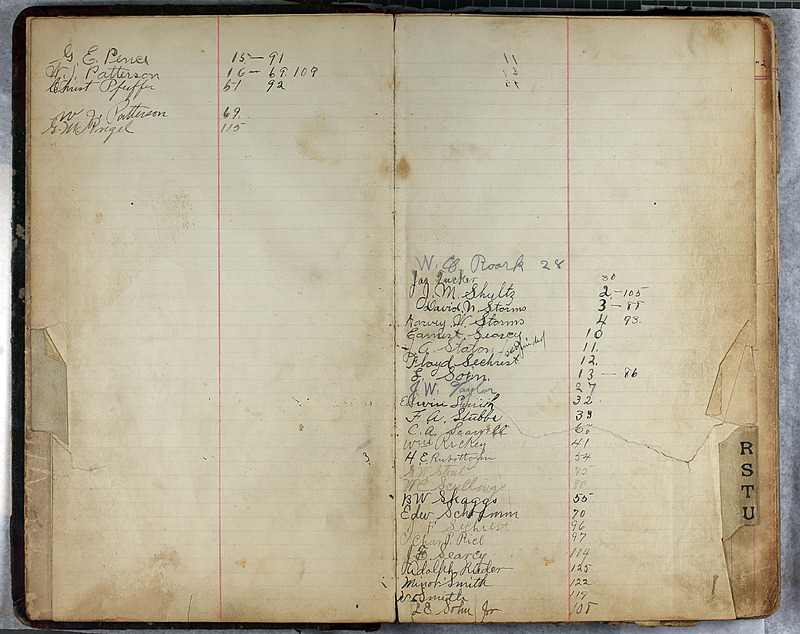 G. E. Pence 15 — 91
W. J. Patterson 16 — 69. 109
Christ Pfeffer 51 92
W. J. Patterson 69.
G. McAngel 115
11
W. C. Roark 28
Jas Tucker 30
J. M. Shultz 2 — 105
David N. Storms 3 — 88
Harvey W. Storms 4 93.
Earnest Searcy 10
A. Staton 11.
Floyd Sechrist 12.
E. Sohn. 13 — 86
J. W. Taylor 27
Edwin Smith 32
F. A. Stubbs 38
C. A. Seawell
Will Rickey 41
3
H. E. 54
75
W C 80
B W Skaggs 55
Edw Schramm 70
J F Sechrist 96
Chas Riel 97
J. E. Searcy 114
Rudolph Rader 125
Minor Smith 122
Smith 119
L E Sohn Jr 108
R
S
T
U